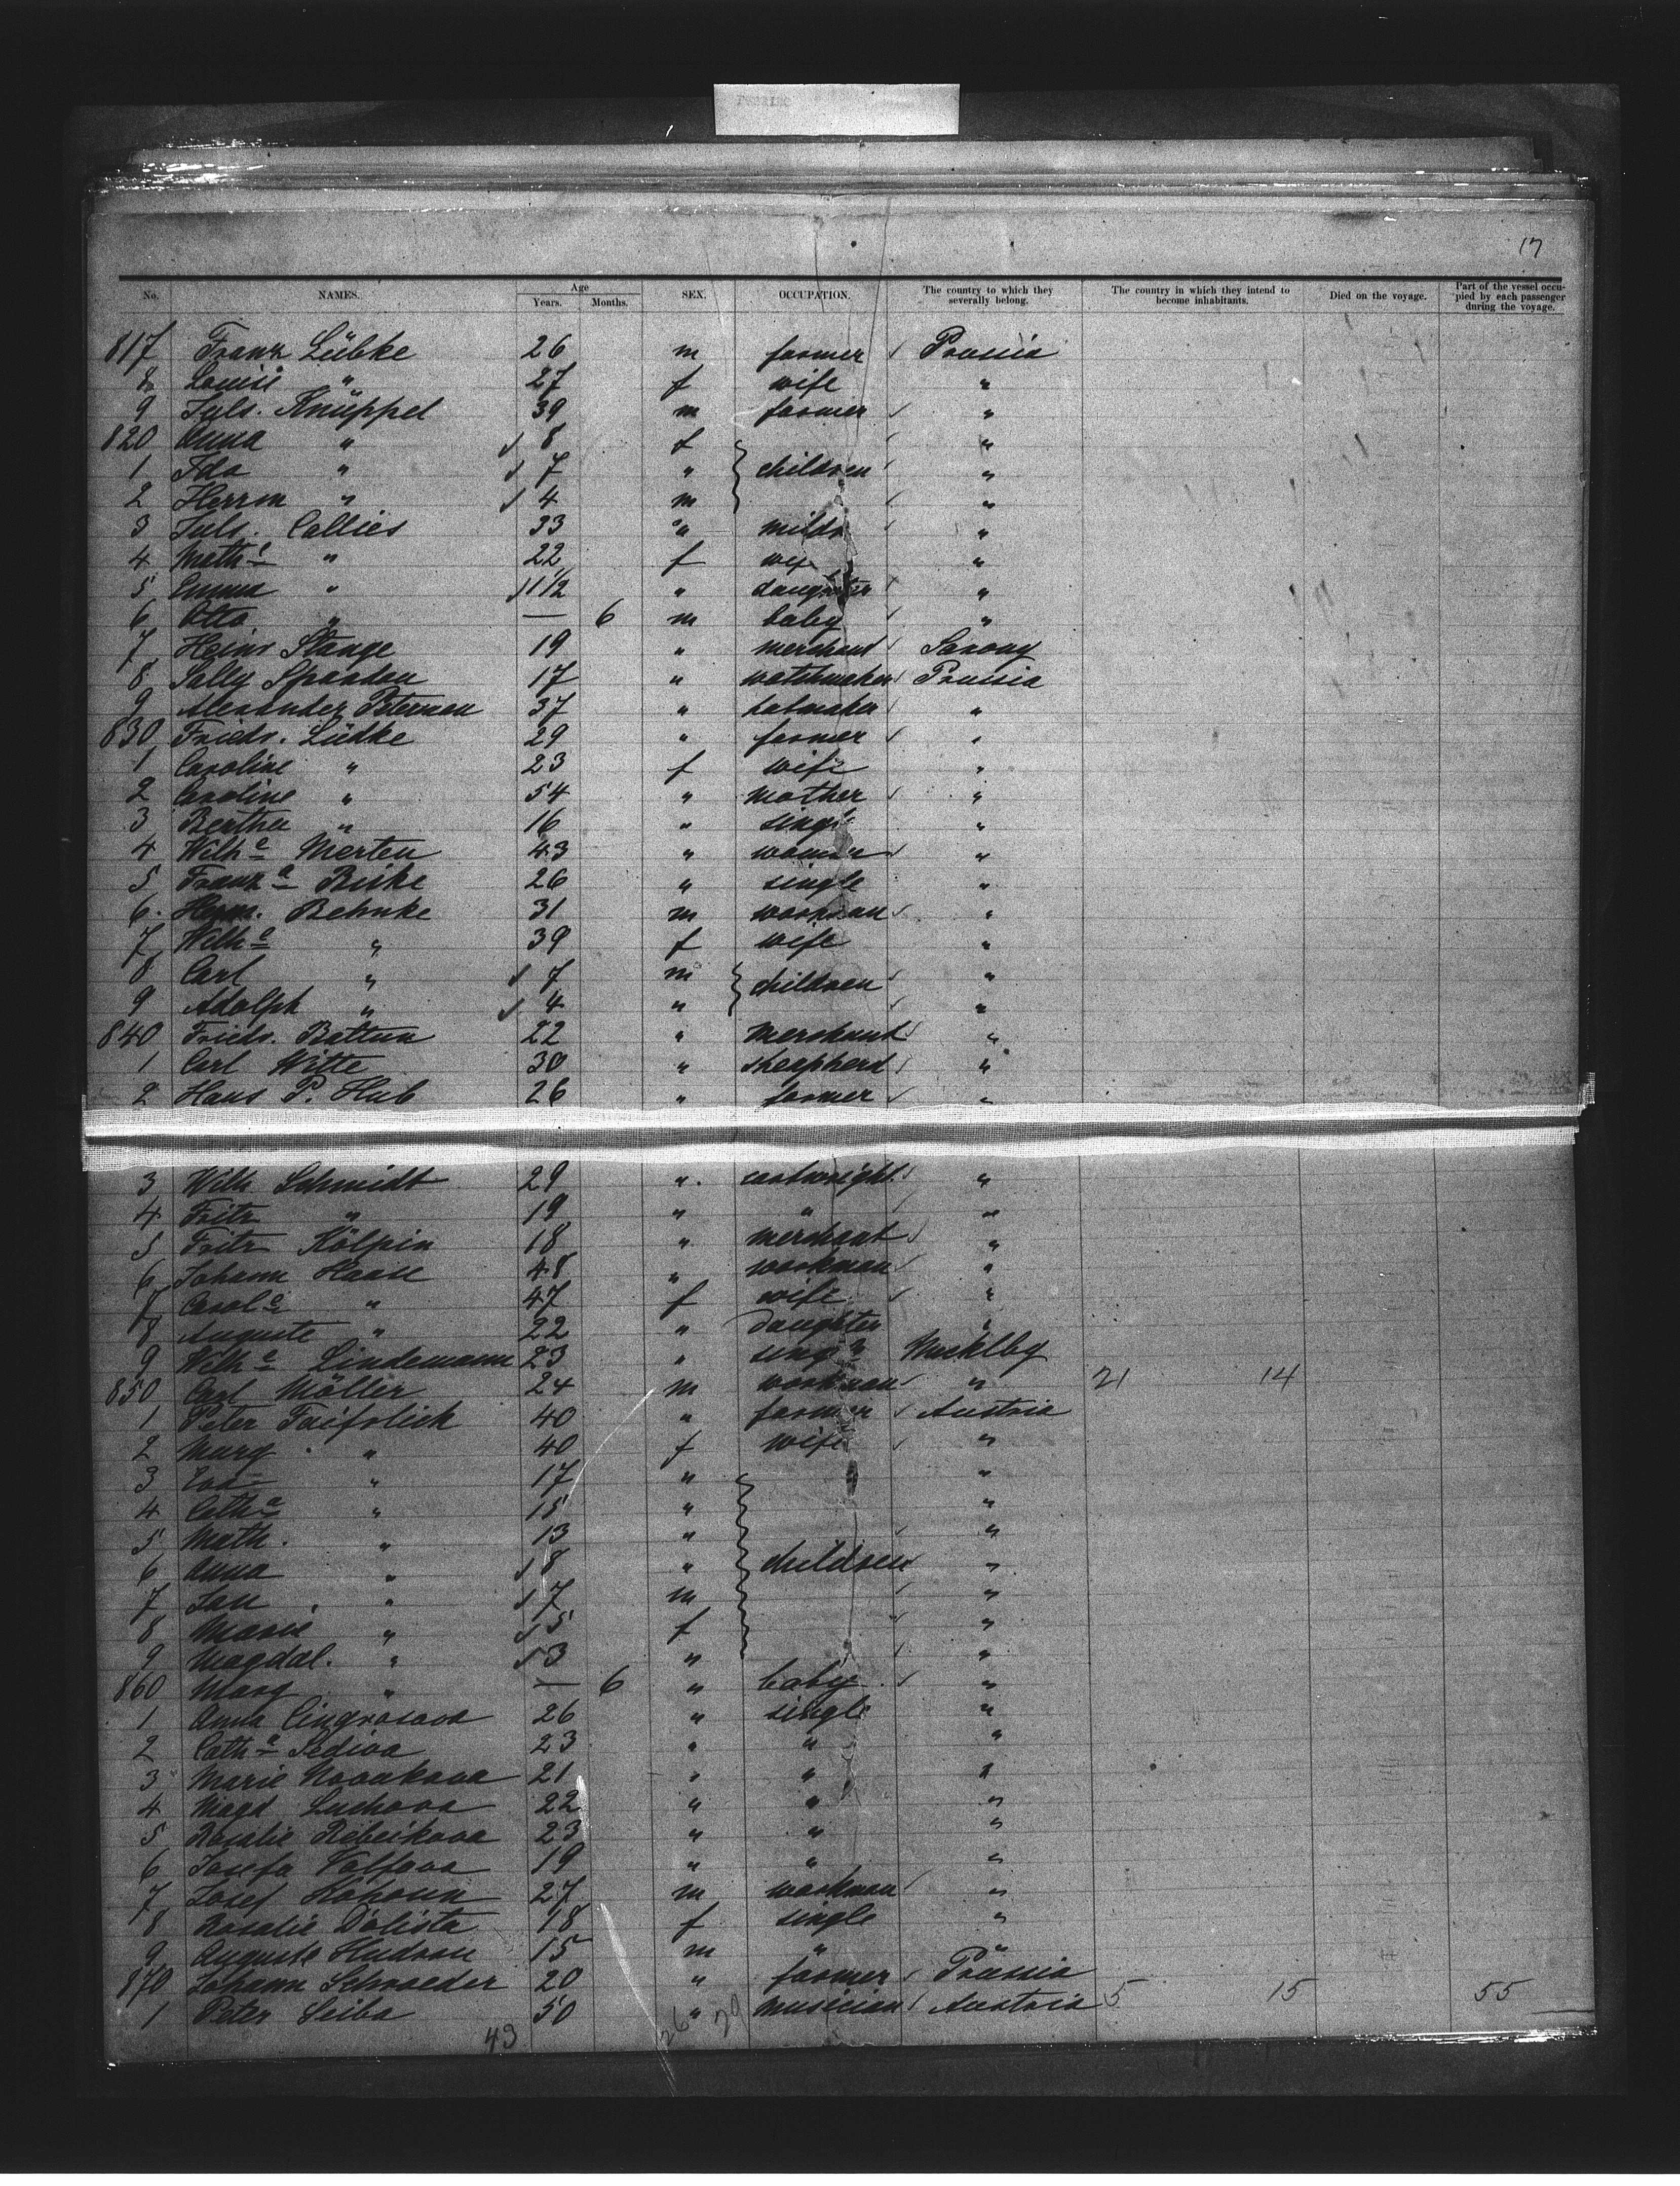 17
No. NAMES. Age Years. Months. SEX. OCCUPATION. The country to which they severally belong. The country in which they intend to become inhabitants. Died on the voyage. Part of the vessel occupied by each passenger during the voyage.
817 Franz Lübke 26 m farmer Prussia
8 Louise " 27 f wife "
9 Juls. Knüppel 39 m farmer "
820 Anna " 8 f "
1 Ida " 7 " children "
2 Herrm " 4 m "
3 Juls. Callies 33 " "
4 Mathe " 22 f wife "
5 Emma " 11/2 " daughter "
6 Otto " — 6 m baby "
7 Heinr Stange 19 " merchant Saxony
8 Sally Spandau 17 " watchmaker Prussia
9 Alexander Peterman 37 " hatmaker "
830 Friedr. Lüdke 29 " farmer "
1 Caroline " 23 f wife "
2 Caroline " 54 " mother "
3 Bertha " 16 " single "
4 Wilhe Merten 43 " woman "
5 Franza 26 " single "
6 Herm. Behnke 31 m workman "
7 Wilhe " 39 f wife "
8 Carl " 7 m children "
9 Adolph " 4 " "
840 Friedr. 22 " merchant "
1 Carl Witte 30 " sheapherd "
2 Hans P. Hub 26 " farmer "
3 Wilh Schmidt 29 " cartwright "
4 Fritz " 19 " " "
5 Fritz Kölpin 18 " merchant "
6 Johann Haase 48 " workman "
7 Carole " 47 f wife "
8 Auguste " 22 " daughter "
9 Wilhe Lindemann 23 " single Mecklbg
850 Carl Möller 24 m workman " 21 14
1 Peter 40 " farmer Austria
2 Marg " 40 f wife "
3 Eva " 17 " "
4 Catha " 15 " "
5 Math. " 13 " "
6 Anna " 8 " children "
7 Jan " 7 m "
8 Marie " 5 f "
9 Magdal. " 3 " "
860 Marg " — 6 " baby "
1 Anna Cingrosova 26 " single "
2 Catha Sediva 23 " " "
3 Marie Novakova 21 " " "
4 Magd Suchova 22 " " "
5 Rosalie Ribeikova 23 " " "
6 Josefa Volfova 19 " " "
7 Josef Kohoun 27 m workman "
8 Rosalie Dolista 18 f single "
9 Auguste 15 m " "
870 Johann Schroeder 20 " farmer Prussia
1 Peter Seiba 50 " musician Austria 5 15 55
43 26 29